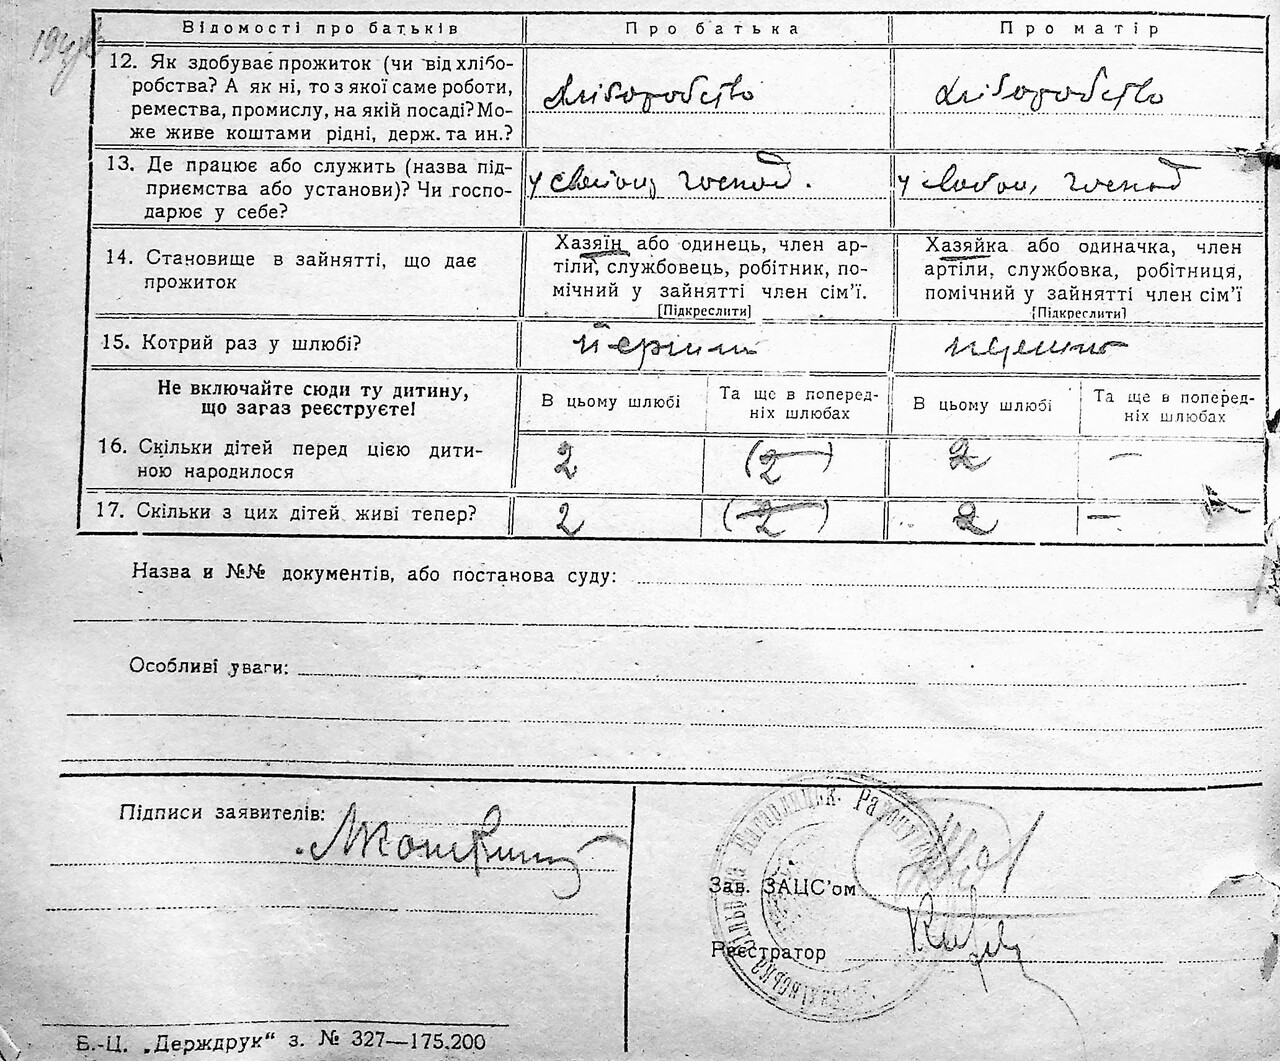 Відомості про батьків Про батька Про матір
12. Як здобуває прожиток (чи від хлібо-
робства? А як ні, то з якої саме роботи,
ремества, промислу, на якій посаді? Мо-
же живе коштами рідні, держ. та ин.?
хліборобство хліборобство
13. Де працює або служить (назва під-
приємства або установи)? Чи госпо-
дарює у себе?
у своїому господ. у господ
14. Становище в зайнятті, що дає
прожиток
Хазяїн або одинець, член ар-
тіли, службовець, робітник, по-
мічний у зайнятті член сім'ї.
[Підкреслити]
Хазяйка або одиначка, член
артіли, службовка, робітниця,
помічний у зайнятті член сім'ї
[Підкреслити]
15. Котрий раз у шлюбі?
Не включайте сюди ту дитину,
що загаз реєструєте!
В цьому шлюбі
Та ще в поперед-
ніх шлюбах
В цьому шлюбі
Та ще в поперед-
ніх шлюбах
16. Скільки дітей перед цією дити-
ною народилося
2 (2) 2 —
17. Скільки з цих дітей живі тепер?
2 (2) 2 —
Назва и №№ документів, або постанова суду:
Особливі уваги:
Підписи заявителів:
Зав. ЗАЦС'ом
Реєстратор
Б.-Ц. „Держдрук“ з. № 327—175.200